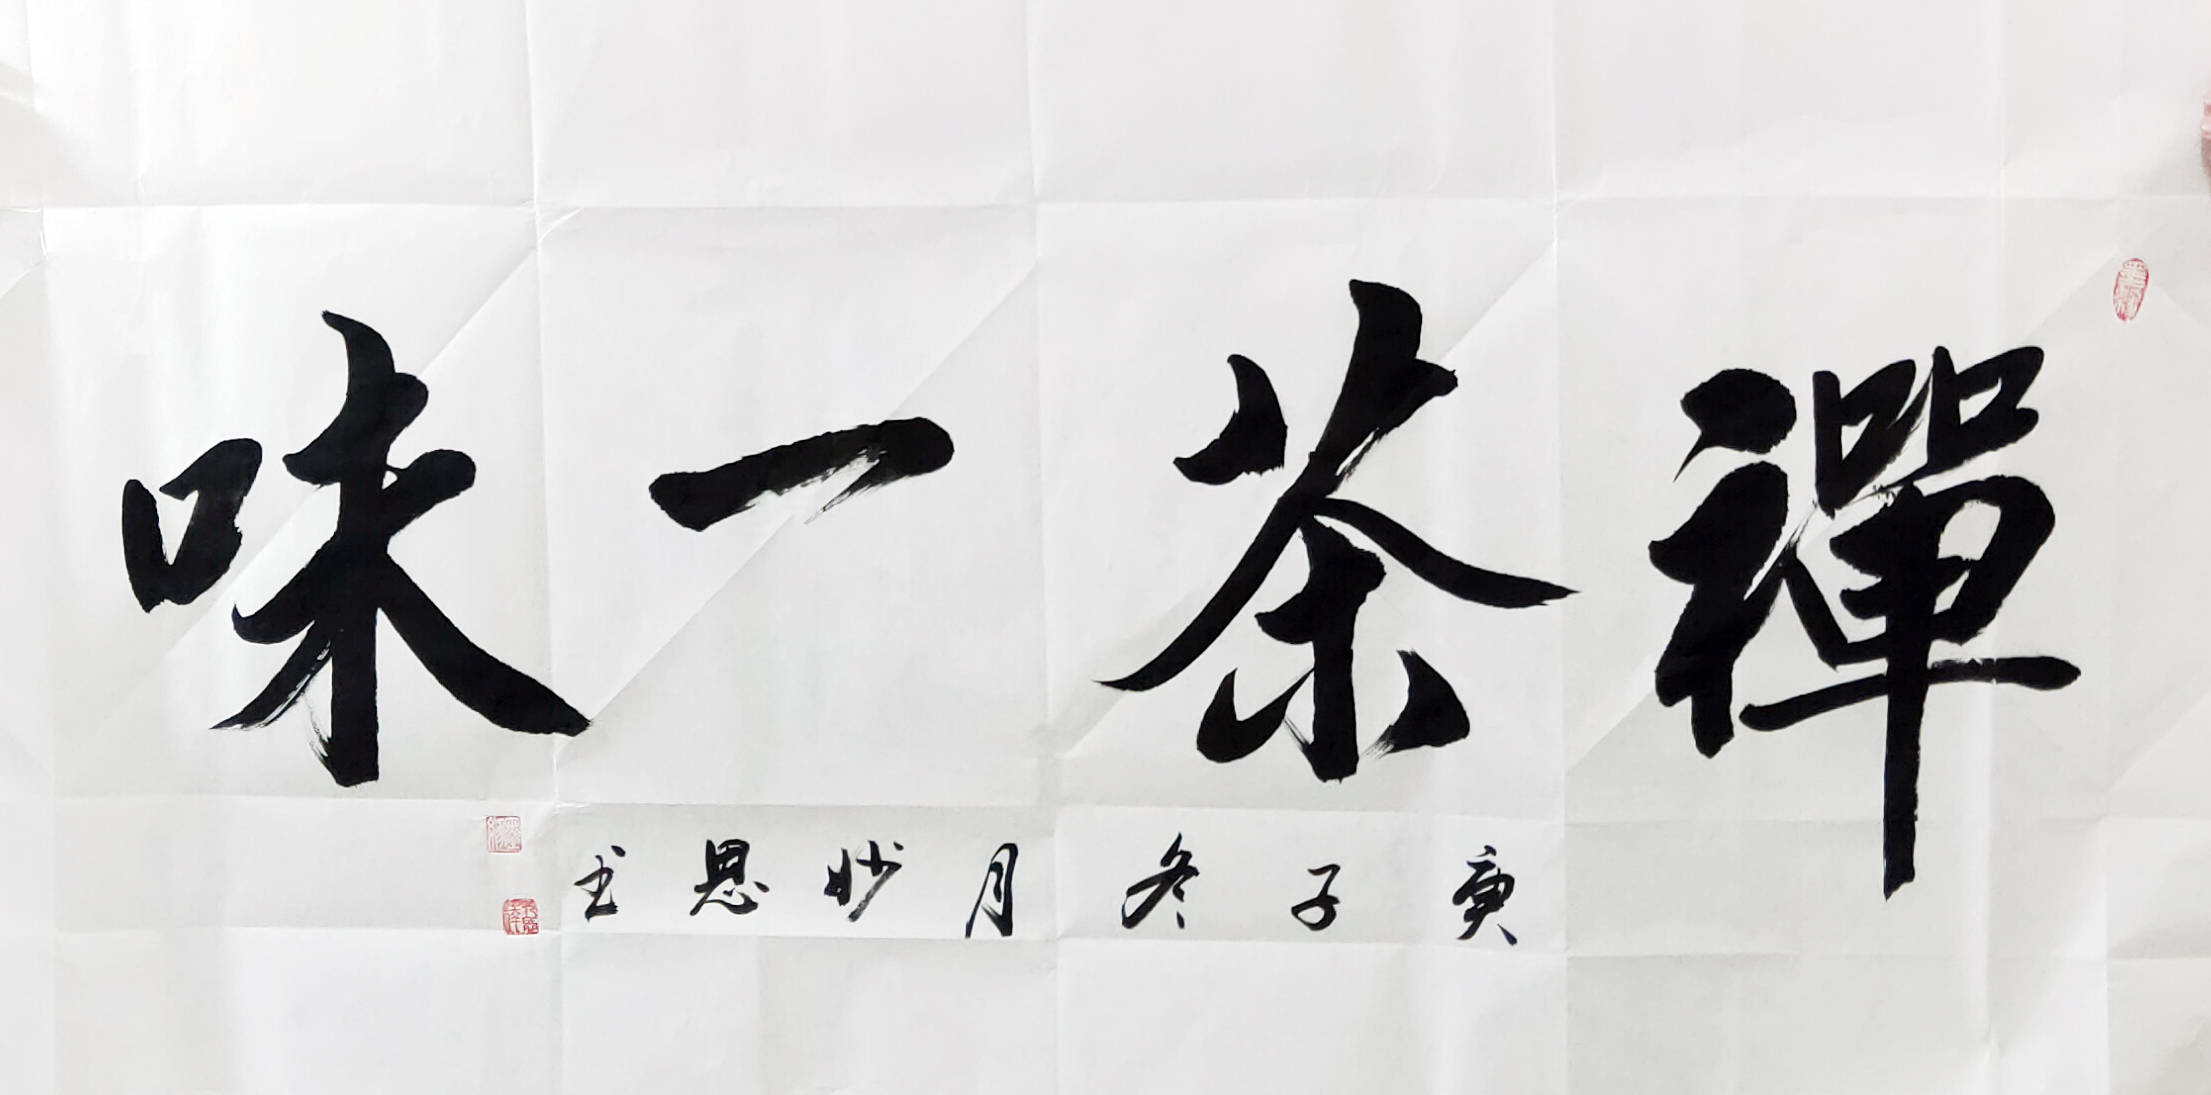 禪茶一味
庚子冬月妙恩书